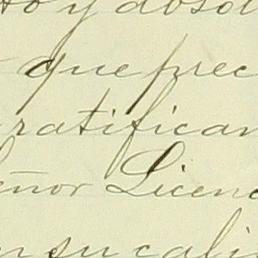 to y absol
que prec
ratifican
eñor Licenc
en su cali